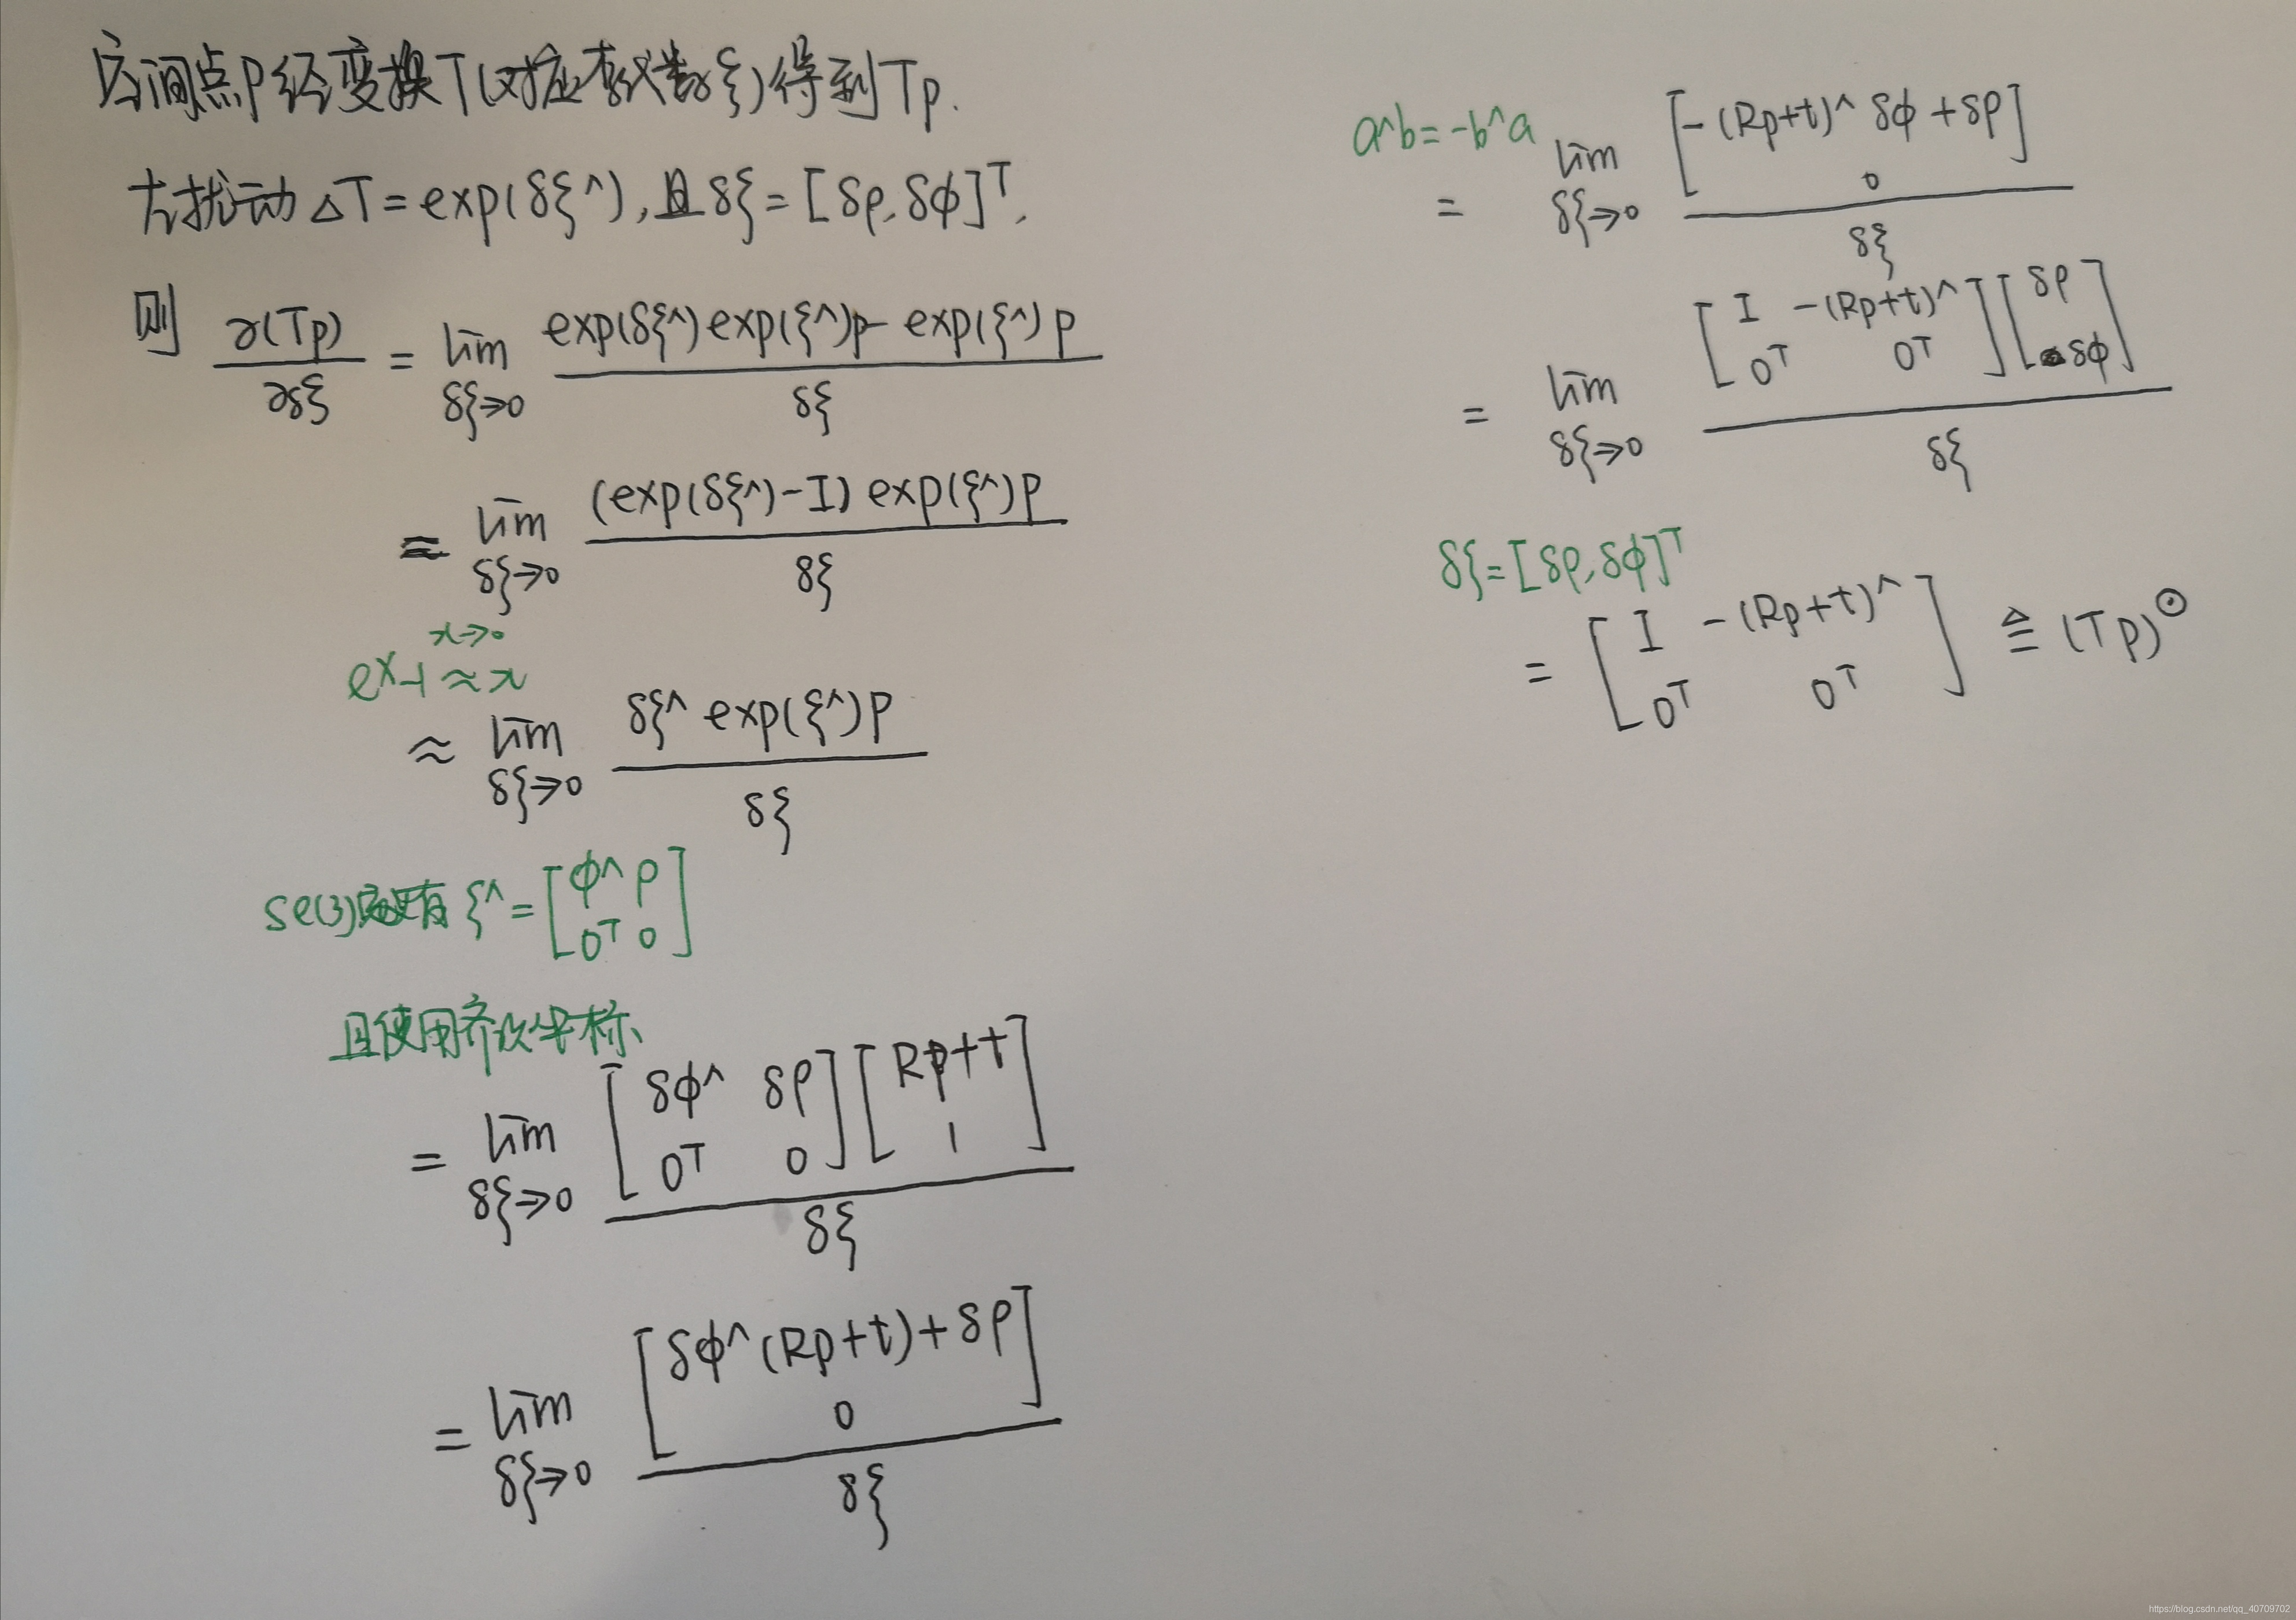 空间点P经变换T(对应李代数ξ)得到Tp.
左扰动 ΔT = exp(δξ^), 且 δξ = [δρ, δϕ]ᵀ,
则 ∂(Tp)/∂δξ = lim δξ→0 (exp(δξ^) exp(ξ^)p - exp(ξ^)p) / δξ
= lim δξ→0 ((exp(δξ^) - I) exp(ξ^)p) / δξ
x→0
eˣ-1 ≈ x
≈ lim δξ→0 (δξ^ exp(ξ^)p) / δξ
se(3) ξ^ = [ϕ^ ρ; 0ᵀ 0]
且使用齐次坐标、
= lim δξ→0 ([δϕ^ δρ; 0ᵀ 0] [Rp+t; 1]) / δξ
= lim δξ→0 [δϕ^(Rp+t)+δρ; 0] / δξ
a^b = -b^a
= lim δξ→0 [-(Rp+t)^ δϕ + δρ; 0] / δξ
= lim δξ→0 ([I -(Rp+t)^; 0ᵀ 0ᵀ] [δρ; δϕ]) / δξ
δξ = [δρ, δϕ]ᵀ
= [I -(Rp+t)^; 0ᵀ 0ᵀ] ≜ (Tp)^⊙
https://blog.csdn.net/qq_40709702